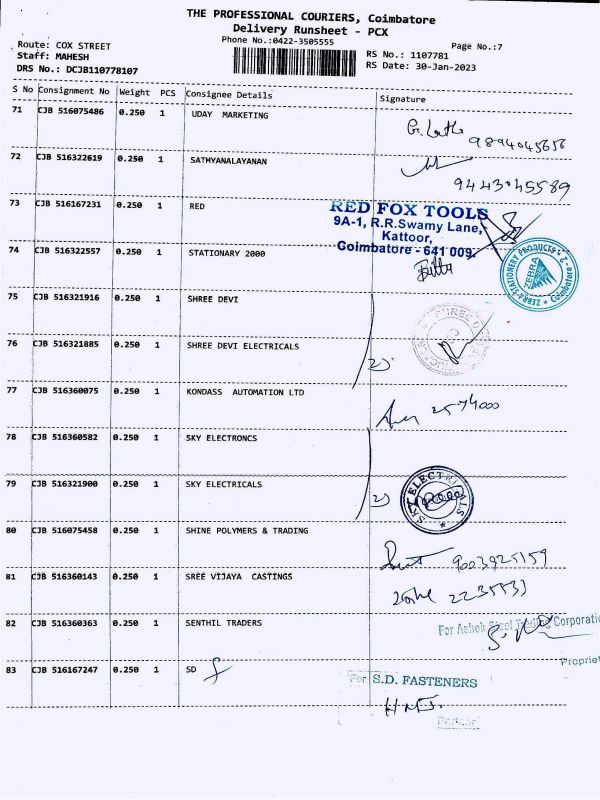 THE PROFESSIONAL COURIERS, Coimbatore
Delivery Runsheet - PCX
Phone No.:0422-3505555
Page No.:7
Route: COX STREET
Staff: MAHESH
DRS No.: DCJB110778107
RS No.: 1107781
RS Date: 30-Jan-2023
S No Consignment No Weight PCS Consignee Details Signature
71 CJB 516075486 0.250 1 UDAY MARKETING
9894045656
72 CJB 516322619 0.250 1 SATHYANALAYANAN
9443045589
73 CJB 516167231 0.250 1 RED
RED FOX TOOLS
9A-1, R.R.Swamy Lane,
Kattoor,
Coimbatore - 641 009.
74 CJB 516322557 0.250 1 STATIONARY 2000
ZEBRA STATIONERY PRODUCTS
ZEBRA
Coimbatore - 2
75 CJB 516321916 0.250 1 SHREE DEVI
76 CJB 516321885 0.250 1 SHREE DEVI ELECTRICALS
2)
77 CJB 516360075 0.250 1 KONDASS AUTOMATION LTD
2574000
78 CJB 516360582 0.250 1 SKY ELECTRONCS
79 CJB 516321900 0.250 1 SKY ELECTRICALS
2) SKY ELECTRICALS
80 CJB 516075458 0.250 1 SHINE POLYMERS & TRADING
9003925159
81 CJB 516360143 0.250 1 SREE VIJAYA CASTINGS
82 CJB 516360363 0.250 1 SENTHIL TRADERS
For Ashok Steel Trading Corporatio
Propriet
83 CJB 516167247 0.250 1 SD
For S.D. FASTENERS
Partner